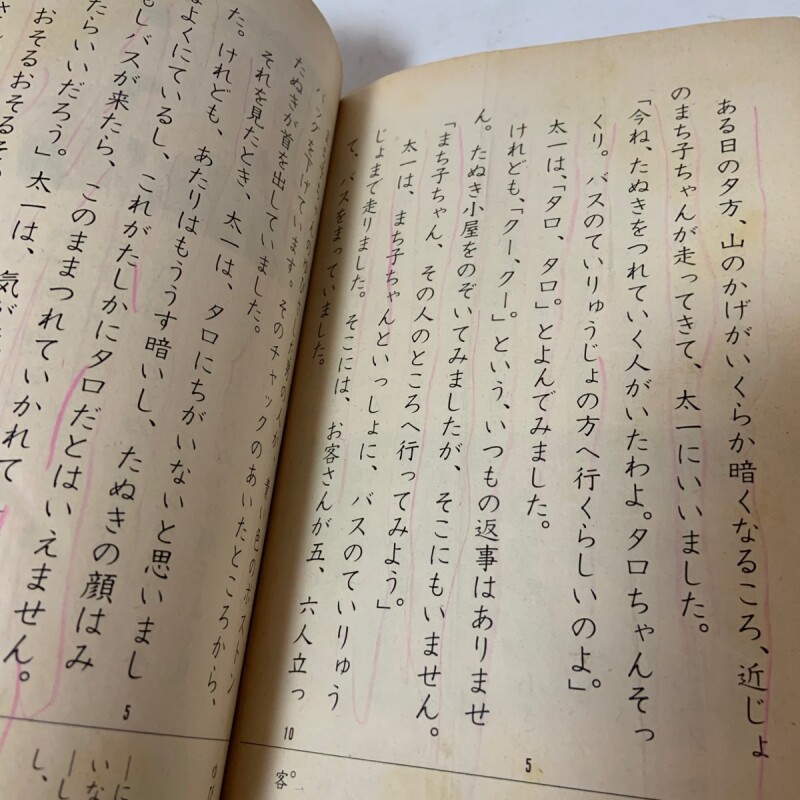 ある日の夕方、山のかげがいくらか暗くなるころ、近じょ
のまち子ちゃんが走ってきて、太一にいいました。
「今ね、たぬきをつれていく人がいたわよ。タロちゃんそっ
くり。バスのていりゅうじょの方へ行くらしいのよ」
太一は、「タロ、タロ。」とよんでみました。
けれども、「クー、クー。」という、いつもの返事はありませ
ん。たぬき小屋をのぞいてみましたが、そこにもいません。
「まち子ちゃん、その人のところへ行ってみよう。」
太一は、まち子ちゃんといっしょに、バスのていりゅう
じょまで走りました。そこには、お客さんが五、六人立っ
て、バスをまっていました。
5
10
客
青い色のボストン
バッグを下げています。そのチャックのあいたところから、
たぬきが首を出していました。
それを見たとき、太一は、タロにちがいないと思いまし
た。けれども、あたりはもううす暗いし、たぬきの顔はみ
なよくにているし、これがたしかにタロだとはいえません。
もしバスが来たら、このままつれていかれて
たらいいだろう。」太一は、気が
おそるおそる
5